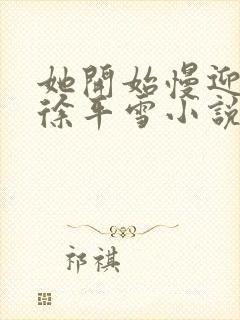 她開始慢迎
徐平雪小說
祁祺